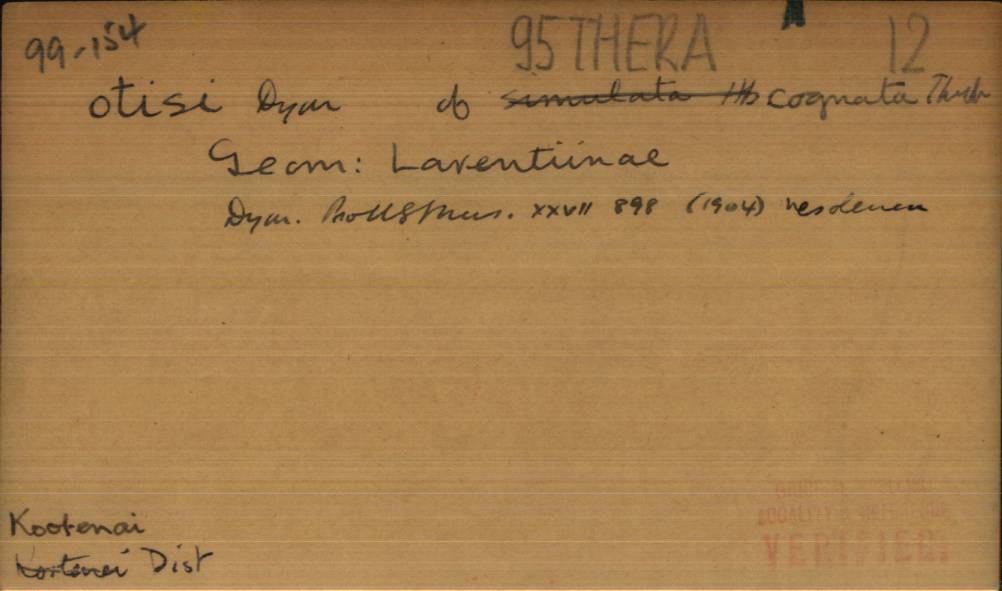 99-154 95 THERA 12
otisi Dyar of simulata Hb cognata Thunb
Geom: Larentiinae
Dyar. Proc US Mus. XXVII 898 (1904)
Kootenai
Kootenai Dist
VERIFIED.